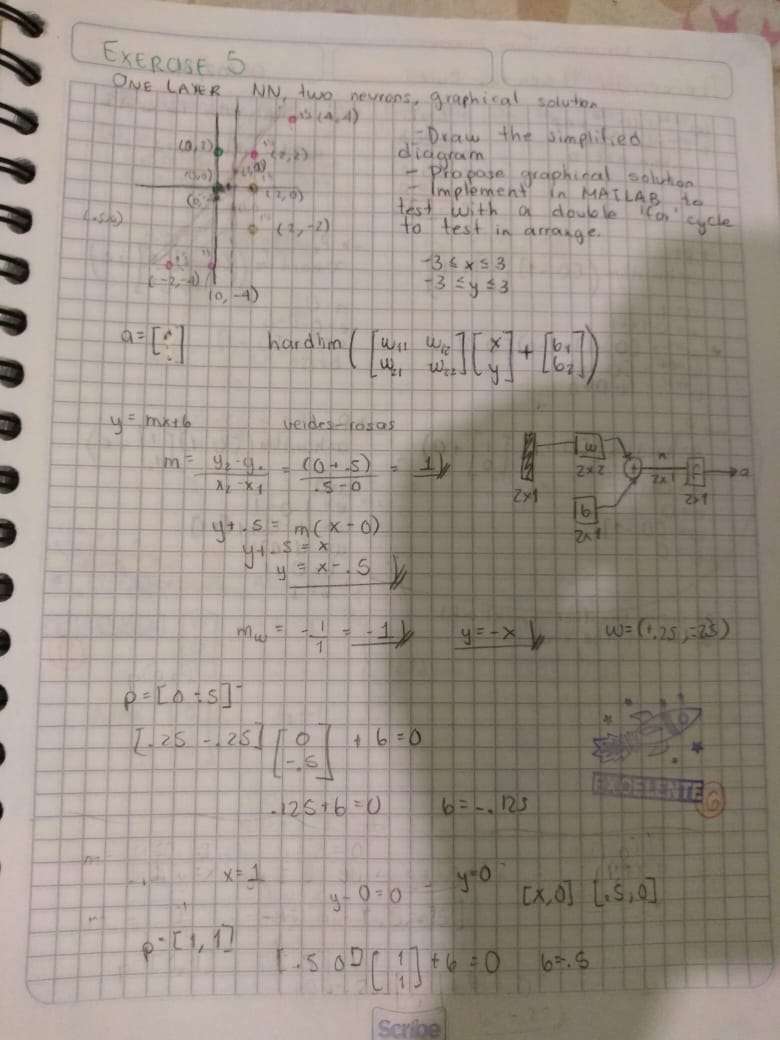 EXERCISE 5
ONE LAYER NN, two neurons, graphical solution
(4,4)
(0,2)
(2,2)
(2,0)
(2,-2)
(-2,-4)
(0,-4)
-Draw the simplified
diagram
- Propose graphical solution
- Implement in MATLAB to
test with a double 'for' cycle
to test in arrange.
-3 ≤ x ≤ 3
-3 ≤ y ≤ 3
a = [ ] hardlim ( [ w11 w12 w21 w22 ] [ x y ] + [ b1 b2 ] )
y = mx+b verdes-rosas
m = y2-y1 / x2-x1 = (0+.5) / .5-0 = 1
w
2x2
2x1
n
2x1
f
2x1
a
b
2x1
y+.5 = m(x-0)
y+.5 = x
y = x-.5
mw = -1/1 = -1 y=-x w=(+.25,-.25)
p=[0 -.5]
[.25 -.25] [0 -.5] + b = 0
.125+b=0 b=-.125
EXCELENTE 6
x=1 y-0=0 y=0 [x,0] [.5,0]
p=[1,1] [.5 0] [1 1] + b = 0 b=-.5
Scribe